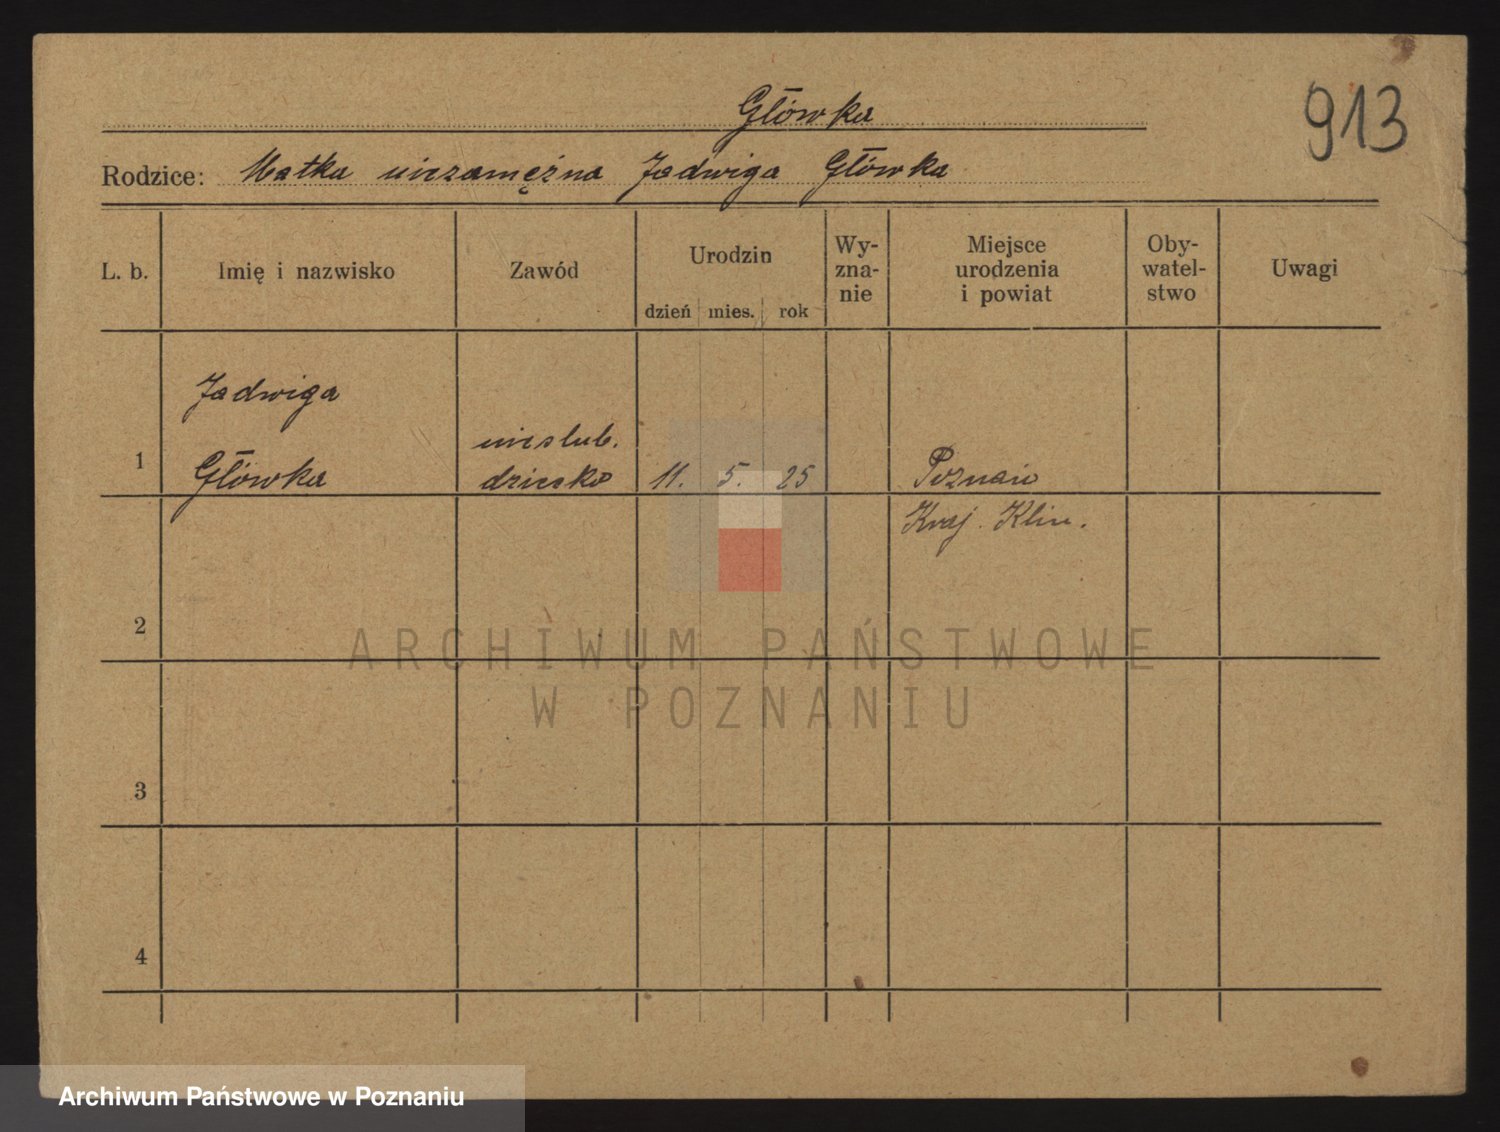 913
Główka
Rodzice: Matka niezamężna Jadwiga Główka
L. b. Imię i nazwisko Zawód Urodzin Wy-zna-nie Miejsce urodzenia i powiat Oby-watel-stwo Uwagi
dzień mies. rok
Jadwiga
nieslub.
1 Główka dziecko 11. 5. 25 Poznań
Kraj. Klin.
2
ARCHIWUM PAŃSTWOWE
W POZNANIU
3
4
Archiwum Państwowe w Poznaniu